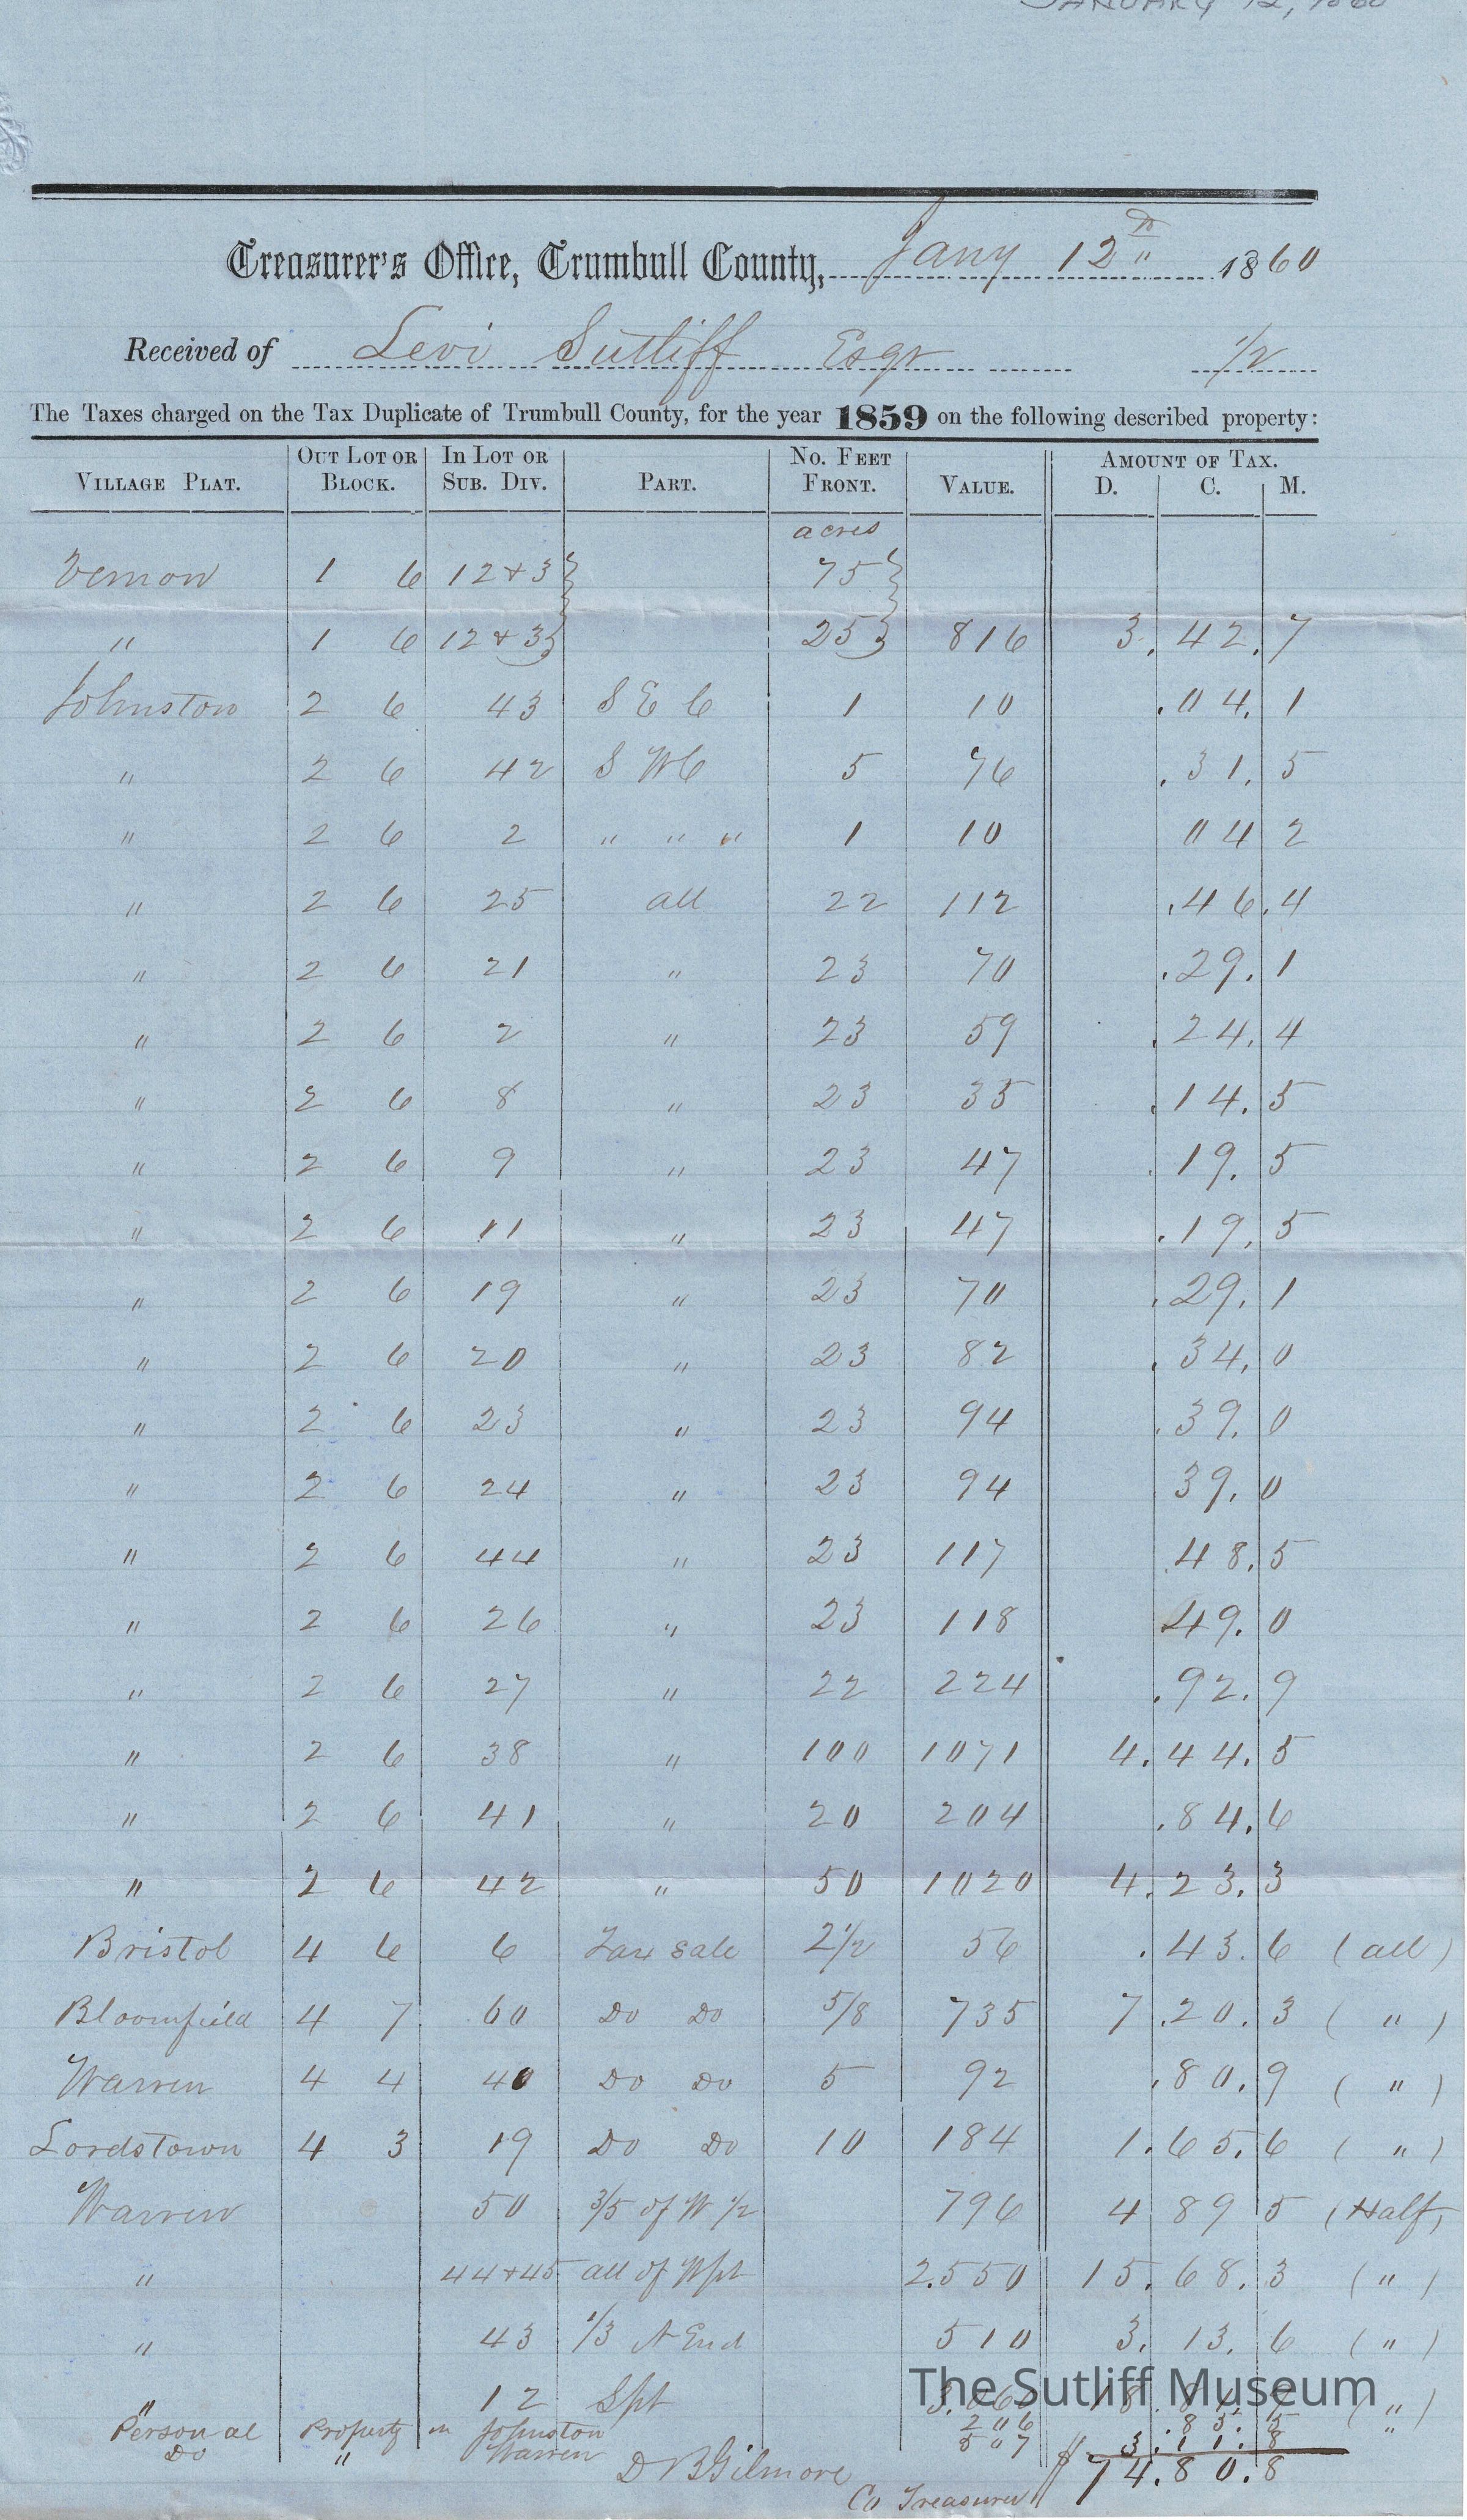 JANUARY 12, 1860
Treasurer's Office, Trumbull County, Jany 12th 1860
Received of Levi Sutliff Esqr 1/2
The Taxes charged on the Tax Duplicate of Trumbull County, for the year 1859 on the following described property:
VILLAGE PLAT. OUT LOT OR BLOCK. IN LOT OR SUB. DIV. PART. NO. FEET FRONT. VALUE. AMOUNT OF TAX. D. C. M.
acres
Vernon 1 6 12+3 75
" 1 6 12+3 25 816 3.42.7
Johnston 2 6 43 S E C 1 10 .04.1
" 2 6 42 S W C 5 76 .31.5
" 2 6 2 " " " 1 10 04 2
" 2 6 25 all 22 112 .46.4
" 2 6 21 " 23 70 .29.1
" 2 6 2 " 23 59 .24.4
" 2 6 8 " 23 35 .14.5
" 2 6 9 " 23 47 .19.5
" 2 6 11 " 23 47 .19.5
" 2 6 19 " 23 70 .29.1
" 2 6 20 " 23 82 .34.0
" 2 6 23 " 23 94 .39.0
" 2 6 24 " 23 94 39.0
" 2 6 44 " 23 117 .48.5
" 2 6 26 " 23 118 49.0
" 2 6 27 " 22 224 .92.9
" 2 6 38 " 100 1071 4.44.5
" 2 6 41 " 20 204 .84.6
" 2 6 42 " 50 1020 4.23.3
Bristol 4 6 6 Tax sale 2 1/2 56 .43.6 (all)
Bloomfield 4 7 60 Do Do 5/8 735 7.20.3 (")
Warren 4 4 40 Do Do 5 92 .80.9 (")
Lordstown 4 3 19 Do Do 10 184 1.65.6 (")
Warren 50 3/5 of W 1/2 796 4 89 5 (Half)
" 44+45 all of Wpt 2.550 15.68.3 (")
" 43 1/3 N End 510 3.13.6 (")
" 12 Spt (")
Personal Property in Johnston 206 .85.5 "
Do " Warren 507 3.11.8
D B Gilmore $74.80.8
Co Treasurer
The Sutliff Museum